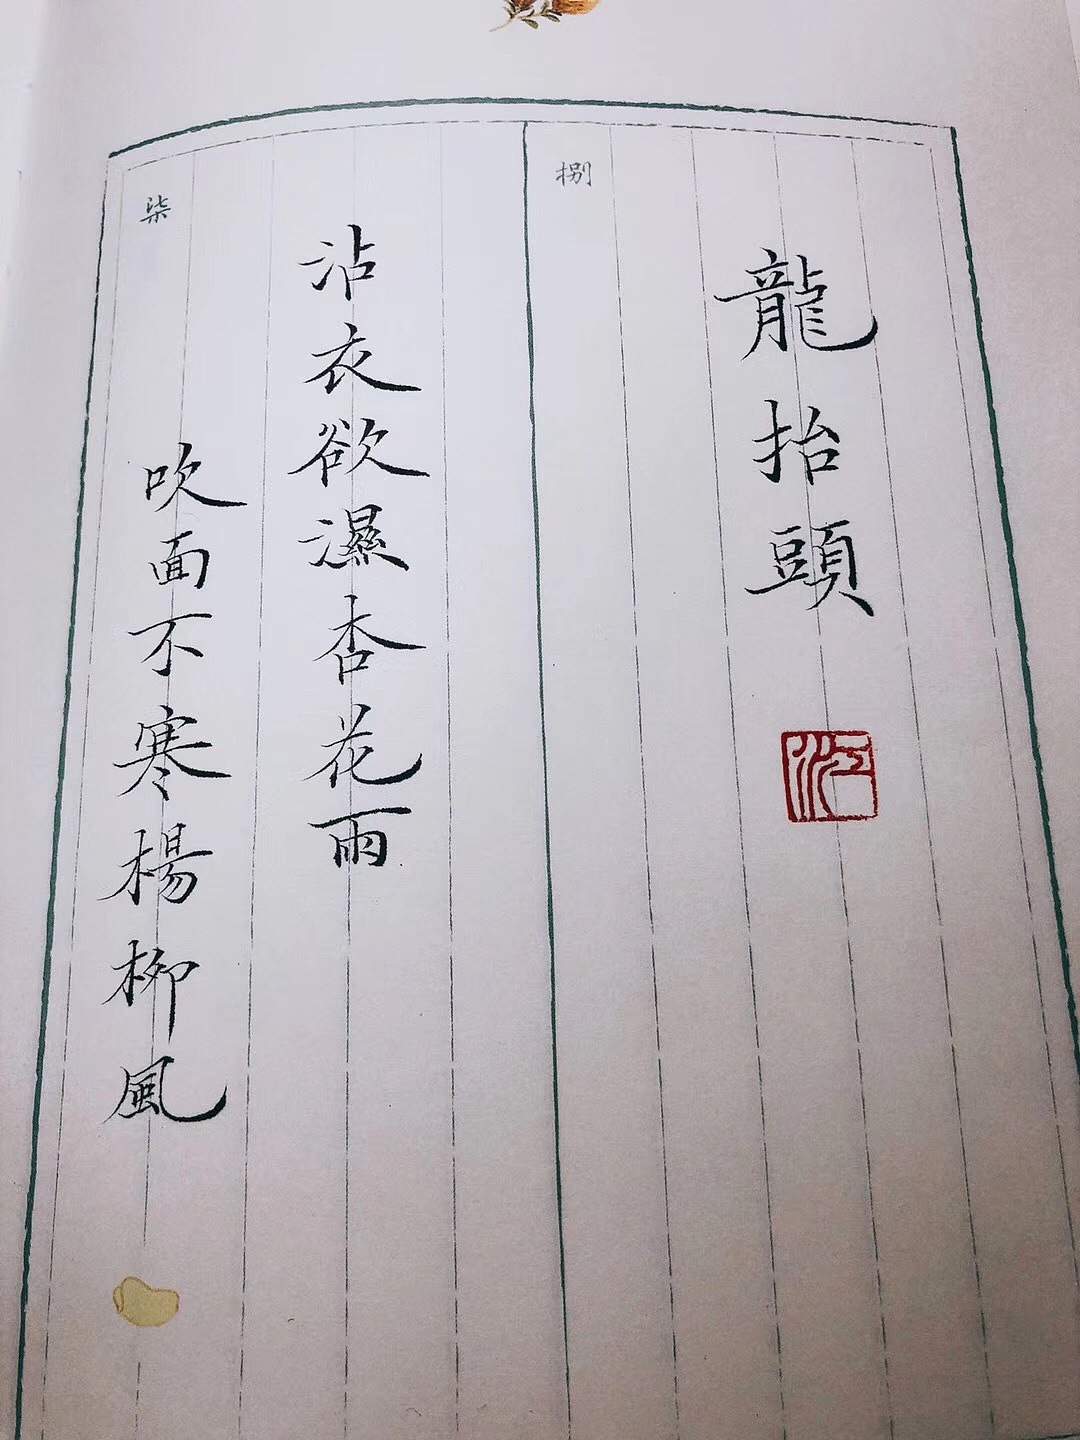 捌
龍抬頭
沾衣欲濕杏花雨
柒
吹面不寒楊柳風